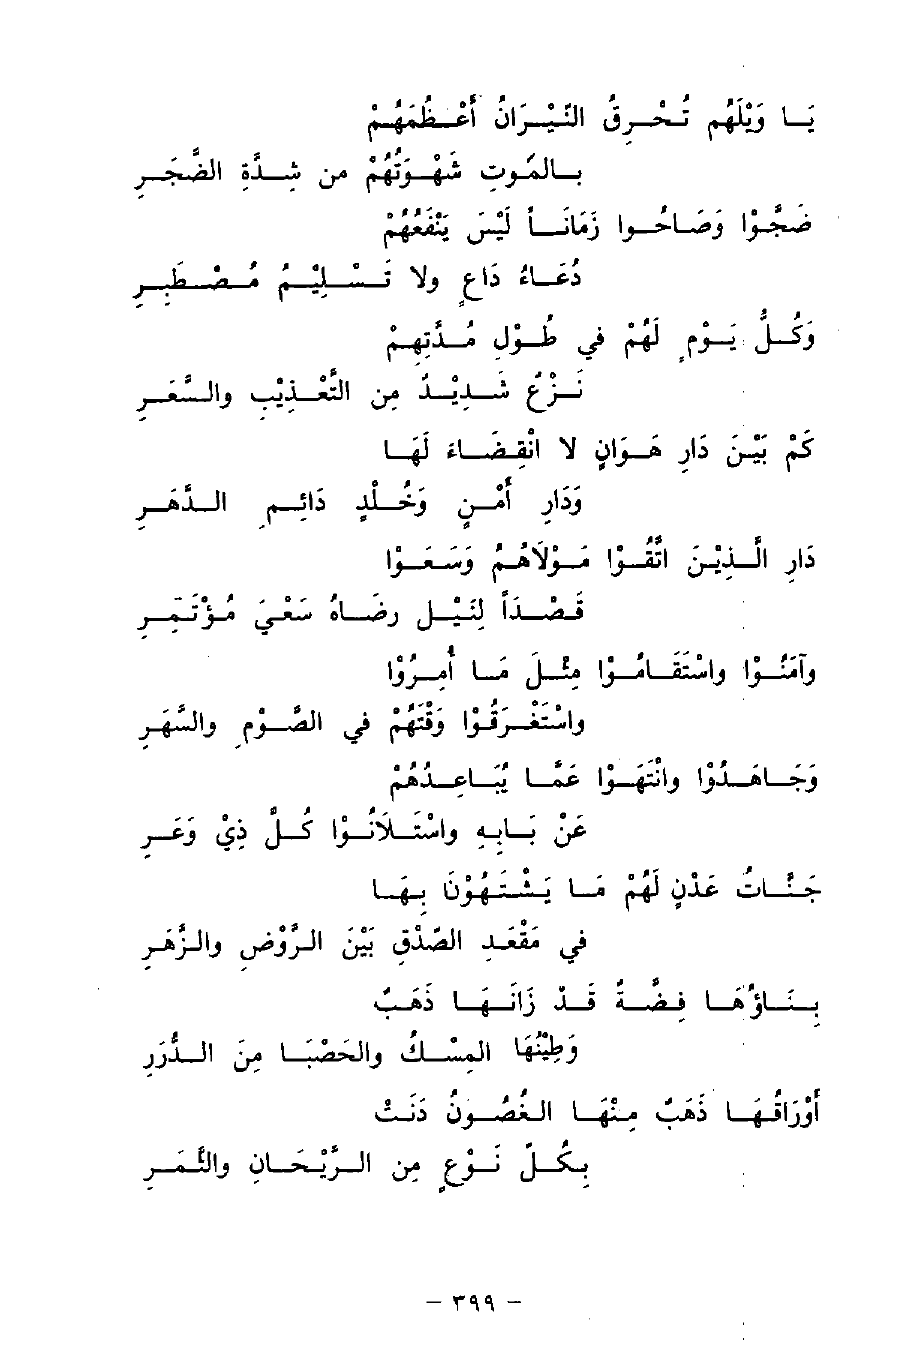 يَا وَيْلَهُم تُحْرِقُ النِّيْرَانُ أَعْظُمَهُمْ
بالمَوتِ شَهْوَتُهُمْ من شِدَّةِ الضَّجَرِ
ضَجُّوْا وَصَاحُوا زَمَانَاً لَيْسَ يَنْفَعُهُمْ
دُعَاءُ دَاعٍ ولا تَسْلِيْمُ مُصْطَبِرِ
وَكُلُّ يَوْمٍ لَهُمْ في طُوْلِ مُدَّتِهِمْ
نَزْعٌ شَدِيْدٌ مِن التَّعْذِيْبِ والسَّعَرِ
كَمْ بَيْنَ دَارِ هَوَانٍ لا انْقِضَاءَ لَهَا
وَدَارِ أَمْنٍ وَخُلْدٍ دَائِمِ الدَّهَرِ
دَارِ الَّذِيْنَ اتَّقُوْا مَوْلَاهُمُ وَسَعَوْا
قَصْدَاً لِنَيْلِ رِضَاهُ سَعْيَ مُؤْتَمِرِ
وآمَنُوْا واسْتَقَامُوْا مِثْلَ مَا أُمِرُوْا
واسْتَغْرَقُوْا وَقْتَهُمْ في الصَّوْمِ والسَّهَرِ
وَجَاهَدُوْا وانْتَهَوْا عَمَّا يُبَاعِدُهُمْ
عَنْ بَابِهِ واسْتَلَانُوْا كُلَّ ذِيْ وَعَرِ
جَنَّاتُ عَدْنٍ لَهُمْ مَا يَشْتَهُوْنَ بِهَا
في مَقْعَدِ الصِّدْقِ بَيْنَ الرَّوْضِ والزَّهَرِ
بِنَاؤُهَا فِضَّةٌ قَدْ زَانَهَا ذَهَبٌ
وَطِيْنُهَا المِسْكُ والحَصْبَا مِنَ الدُّرَرِ
أَوْرَاقُهَا ذَهَبٌ مِنْهَا الغُصُونُ دَنَتْ
بِكُلِّ نَوْعٍ مِن الرَّيْحَانِ والثَّمَرِ
– ٣٩٩ –